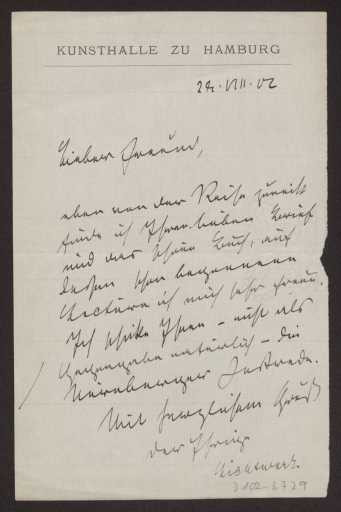 KUNSTHALLE ZU HAMBURG
24. VIII. 02
Lieber Freund,
eben von der Reise zurück
finde ich Ihren lieben Brief
und das schöne Buch, auf
dessen schon begonnene
Lectüre ich mich sehr freue.
Ich schicke Ihnen – nicht als
Gegengabe natürlich – die
Nürnberger Festrede.
Mit herzlichem Gruß
der Ihrige
Lichtwark.